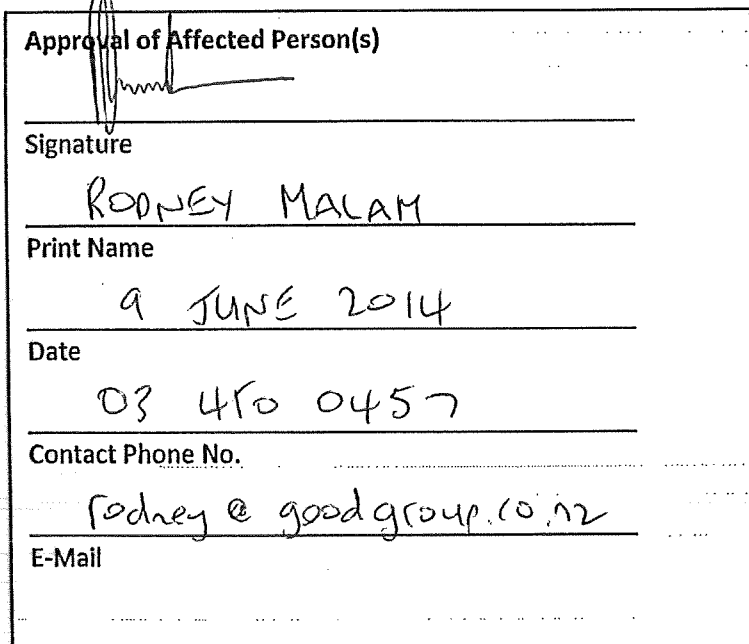 Approval of Affected Person(s)
Signature
RODNEY MALAM
Print Name
9 JUNE 2014
Date
03 450 0457
Contact Phone No.
rodney@goodgroup.co.nz
E-Mail